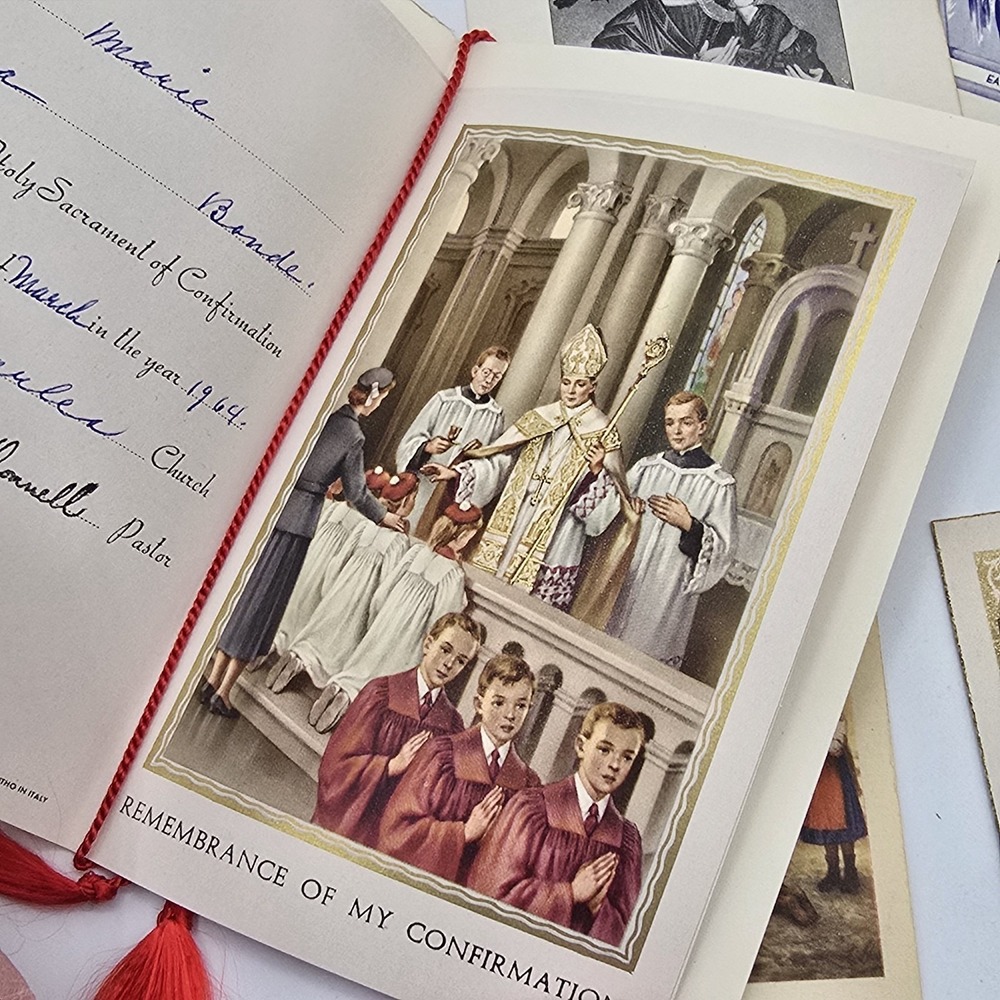 Marie
Bonde.
Holy Sacrament of Confirmation
March in the year 1964.
Church
Pastor
LITHO IN ITALY
REMEMBRANCE OF MY CONFIRMATION
EA